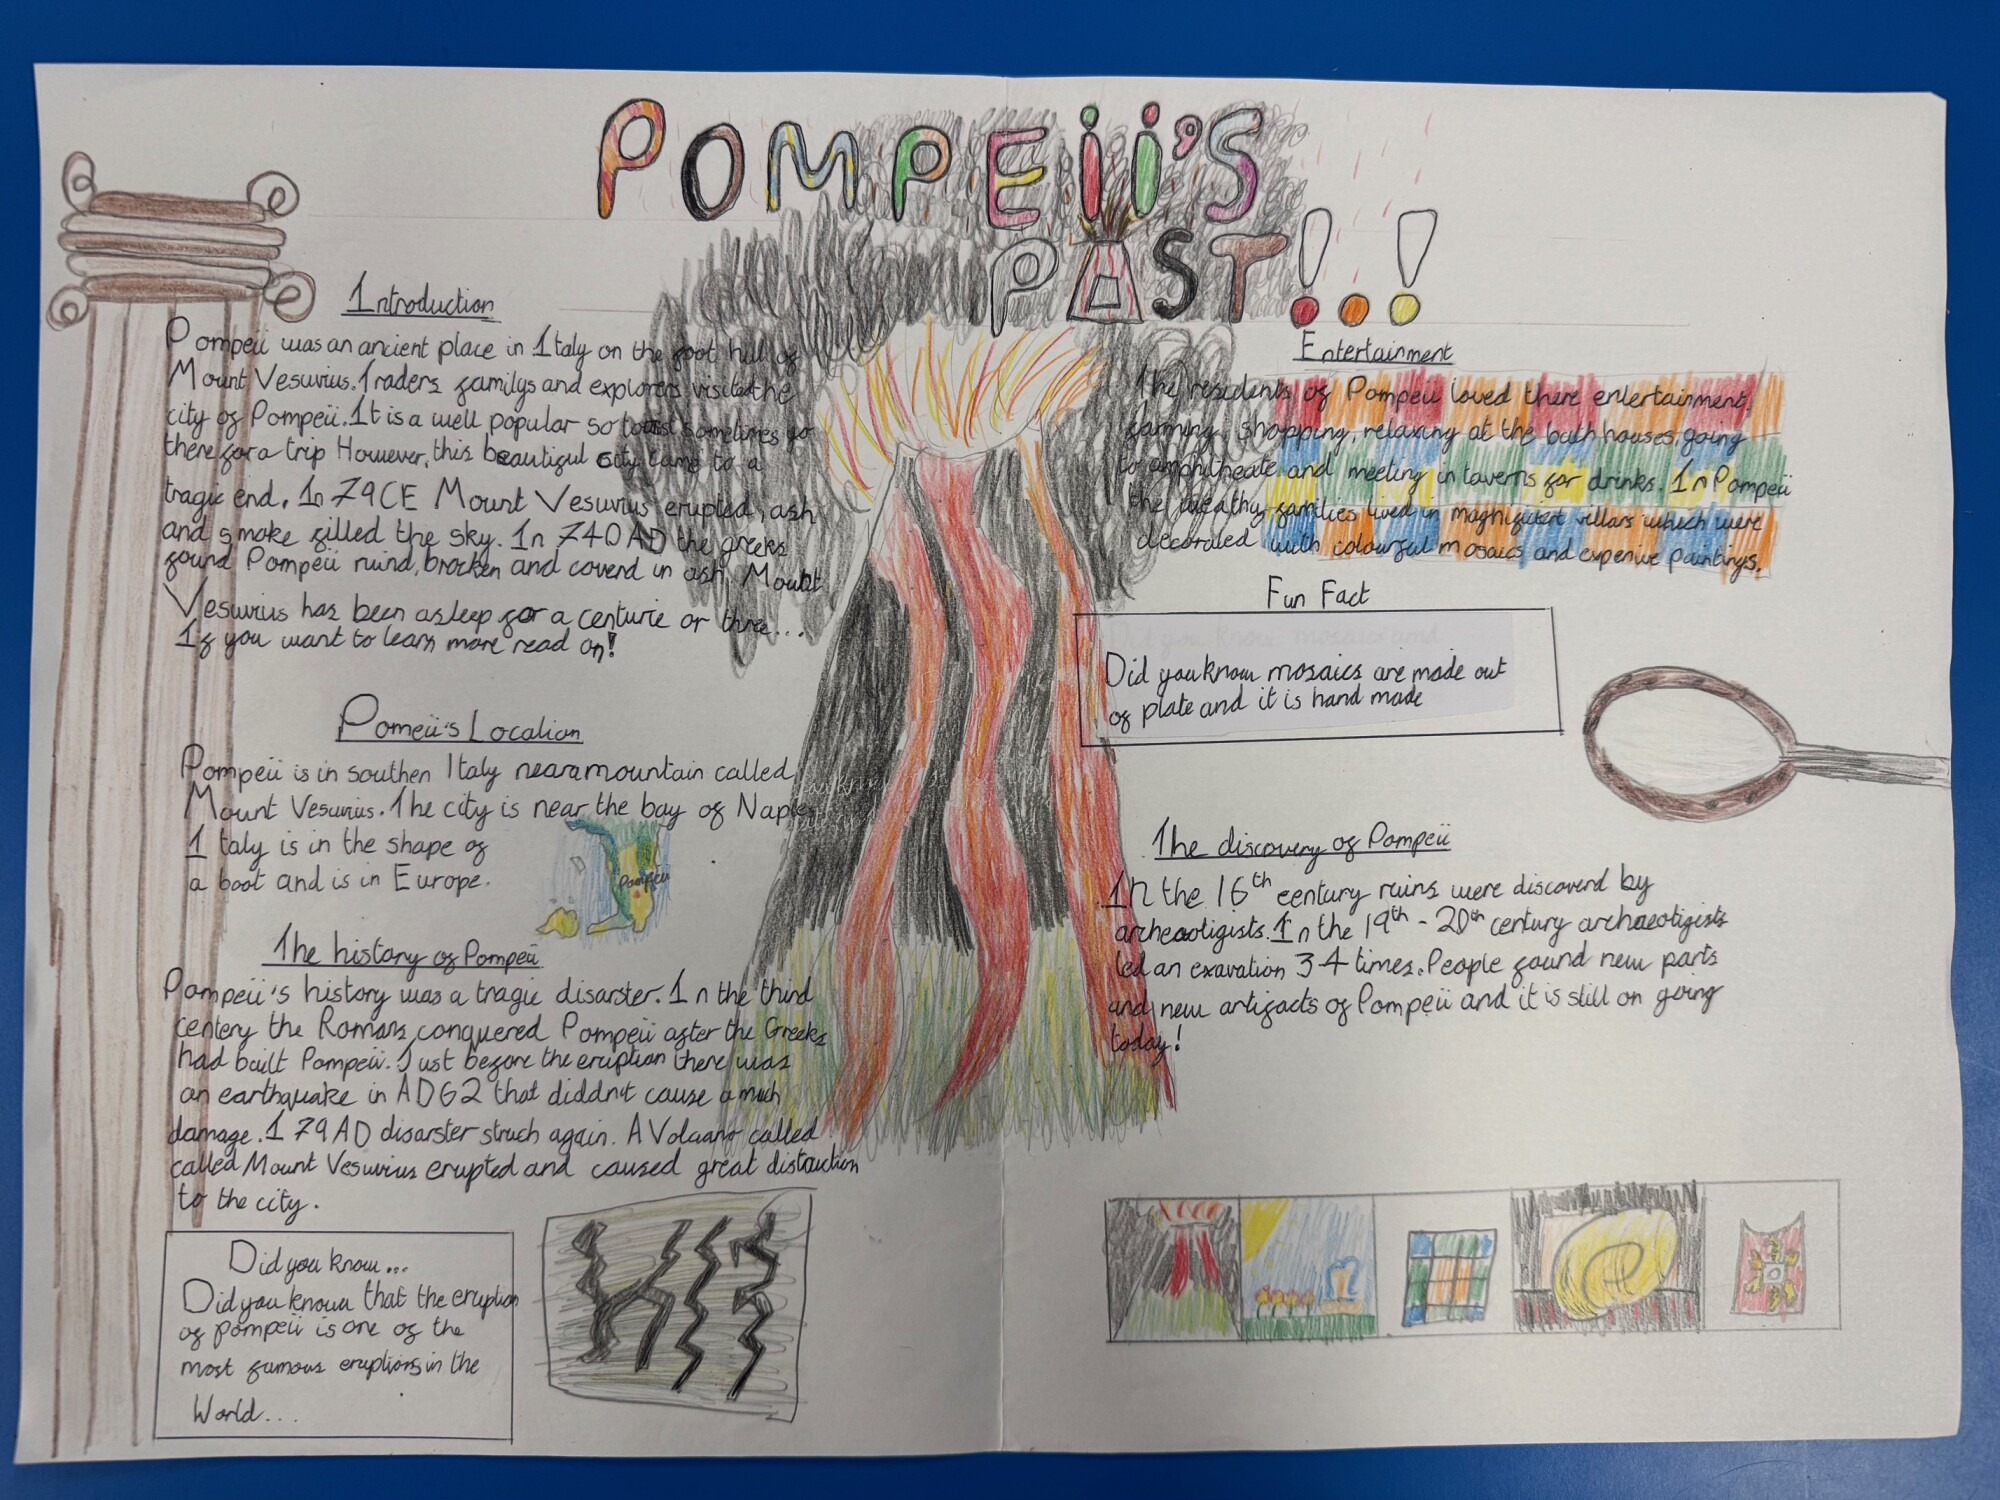 POMPEii'S
PAST!..!
Introduction
Pompeii was an ancient place in Italy on the foot hill of
Mount Vesuvius. Traders familys and explorers visited the
city of Pompeii. It is a well popular so tourist sometimes go
there for a trip However, this beautiful city came to a
tragic end. In 79CE Mount Vesuvius erupted, ash
and smoke filled the sky. In 740 AD the greeks
found Pompeii ruind, brocken and coverd in ash, Mount
Vesuvius has been asleep for a centurie or three...
If you want to learn more read on!
Pomeii's Location
Pompeii is in southen Italy near a mountain called
Mount Vesuvius. The city is near the bay of Naples
Italy is in the shape of
a boot and is in Europe.
Pompeii
The history of Pompeii
Pompeii's history was a tragic disarster. In the third
centery the Romans conquered Pompeii after the Greeks
had built Pompeii. Just before the eruption there was
an earthquake in AD62 that diddn't cause a much
damage. I 79 AD disarster struch again. A Volcano called
called Mount Vesuvius erupted and caused great distruction
to the city.
Did you know...
Did you known that the eruption
of pompeii is one of the
most famous eruptions in the
World...
Entertainment
The residents of Pompeii loved there entertainment,
farming, shopping, relaxing at the bath houses, going
to amphitheate and meeting in taverns for drinks. In Pompeii
the weathy families lived in magnifitert villars which were
decorated with colourful mosaics and expenive paintings.
Fun Fact
Did you know mosaics are made out
of plate and it is hand made
The discovery of Pompeii
IN the 16th century ruins were discoverd by
archeaotigists. In the 19th - 20th century archaeotigists
led an exavation 34 times. People found new parts
and new artifacts of Pompeii and it is still on going
today!